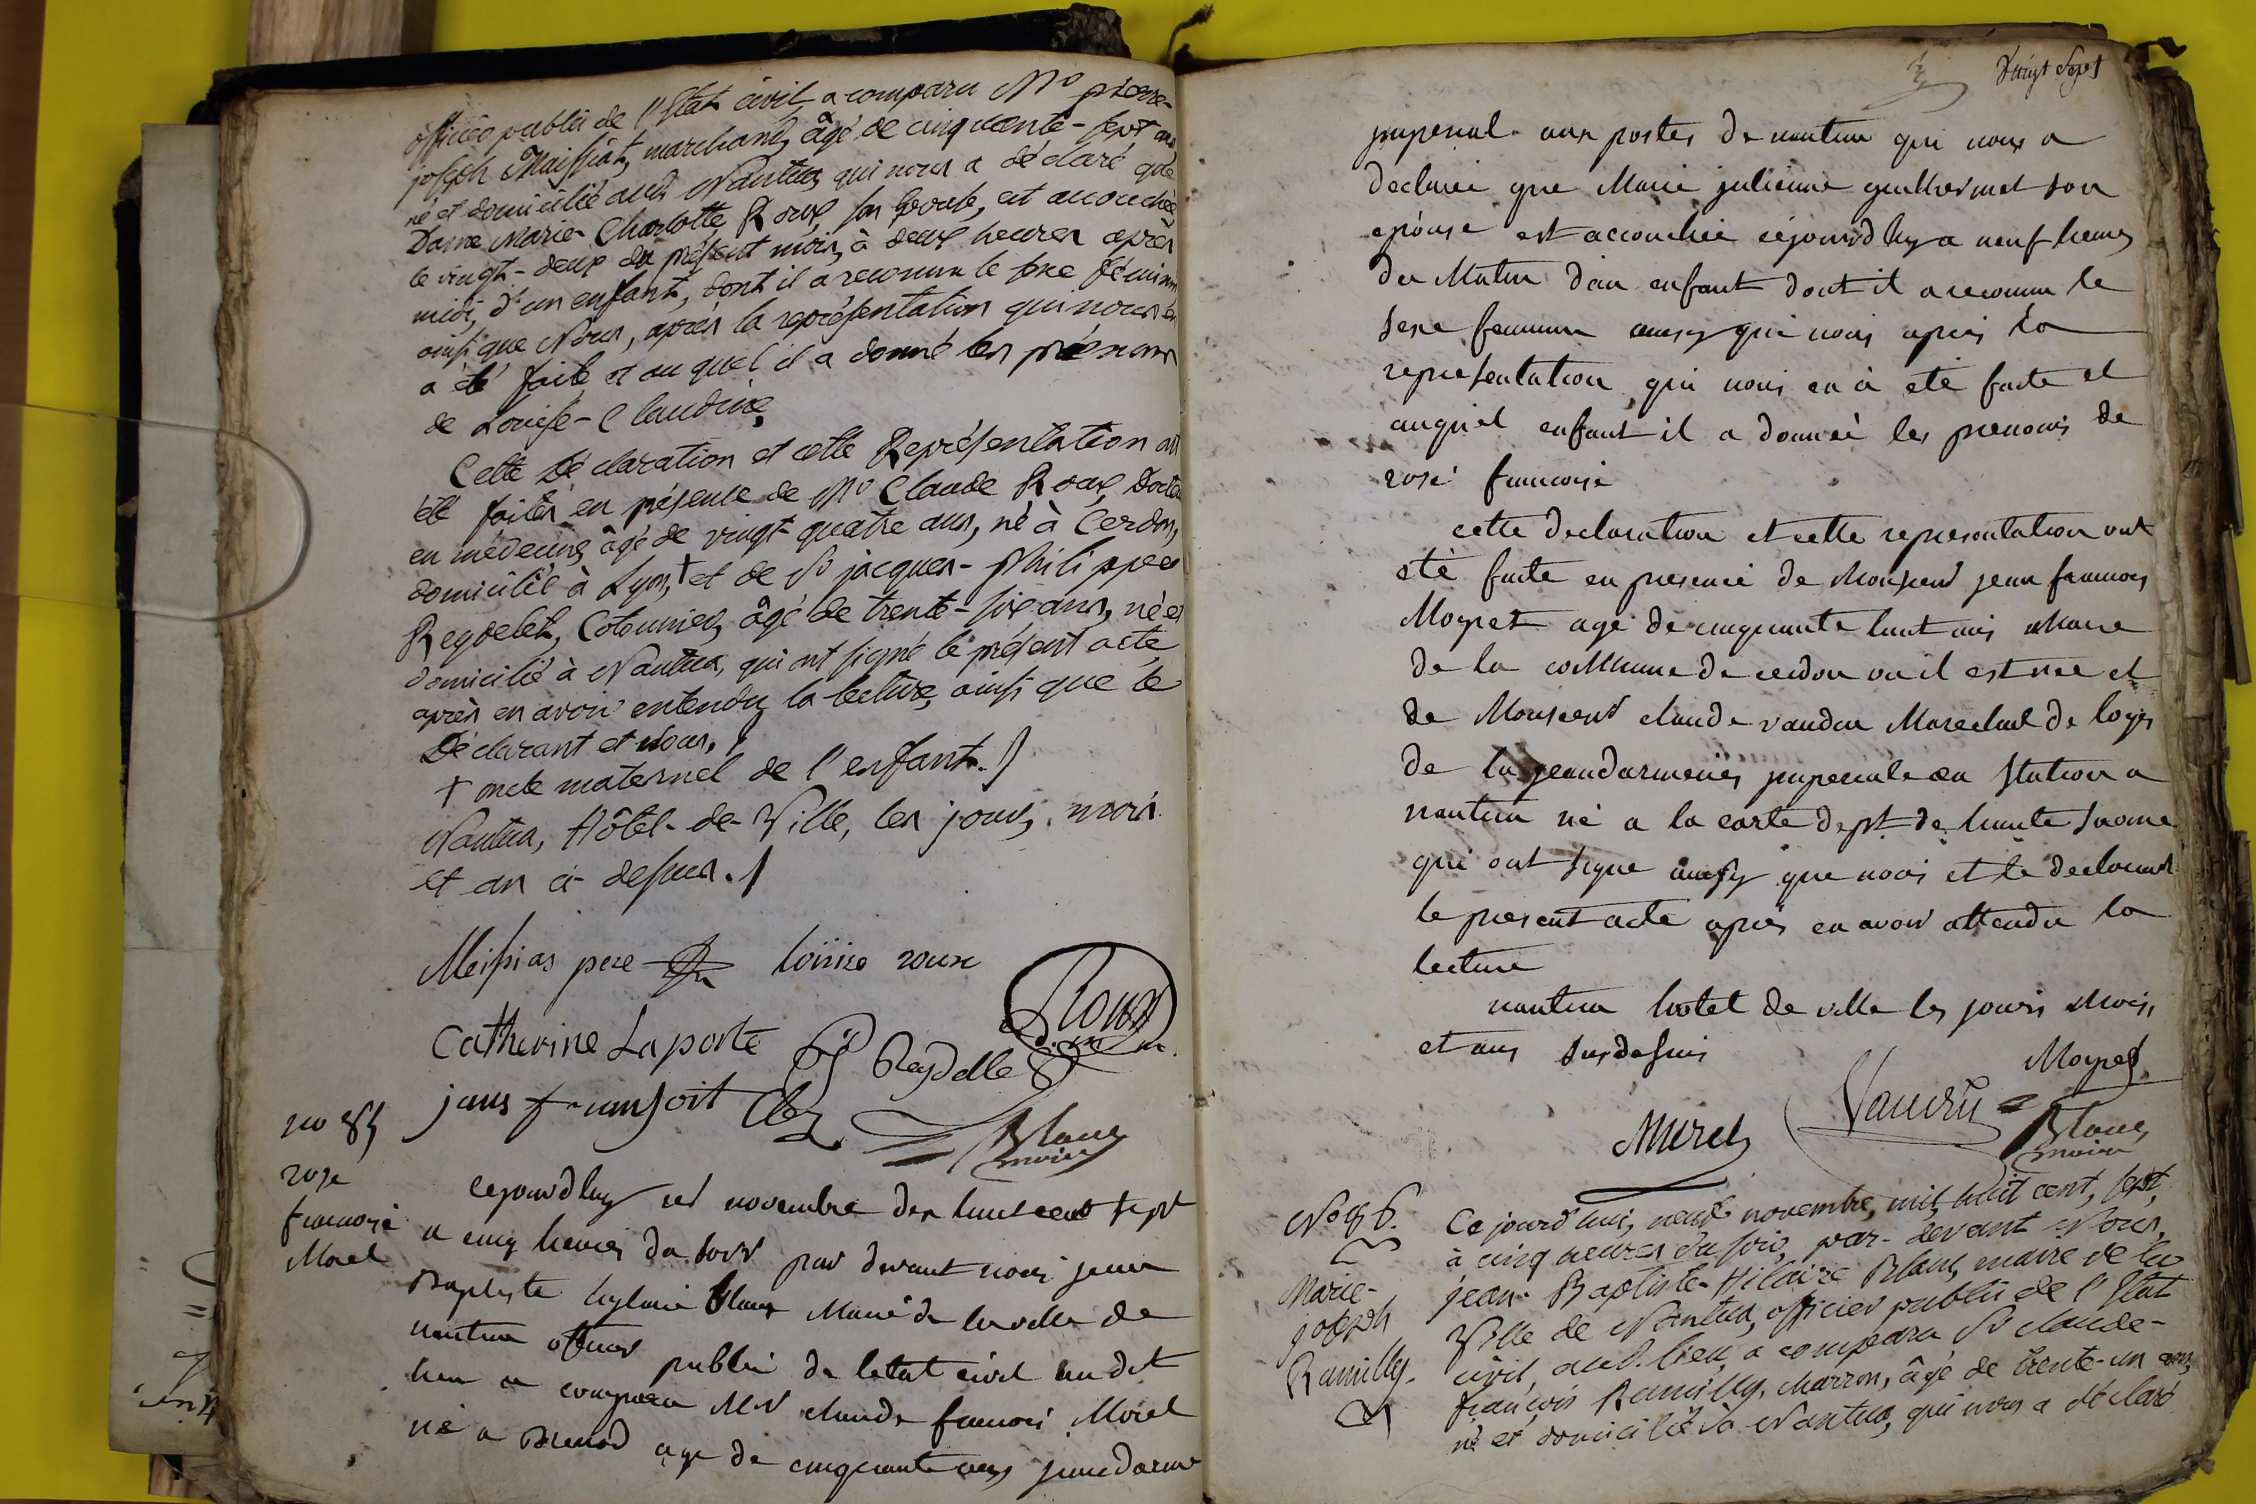 officier public de l'Etat civil, a comparu Mr pierre-
joseph Maissiat, marchand, âgé de cinquante-sept ans
né et domicilié aud. Nantua, qui nous a déclaré que
Dame Marie Charlotte Roux, son Epouse, est accouchée
le vingt-deux du présent mois, à deux heures après
midi, d'un enfant, dont il a reconnu le sexe féminin
ainsi que Nous, après la représentation qui nous en
a été faite et auquel il a donné les prénoms
de Louise-Claudine.
Cette Déclaration et cette Représentation ont
été faites en présence de Mr Claude Roux, Docteur
en médecine, âgé de vingt-quatre ans, né à Cerdon,
domicilié à Lyon, + et de Sr jacques-Philippe
Reydelet, Cotonnier, âgé de trente-six ans, né et
domicilié à Nantua, qui ont signé le présent acte
après en avoir entendu la lecture, ainsi que le
Déclarant et Nous,
+ oncle maternel de l'enfant.
Nantua, Hôtel-de-Ville, les jours, mois
et an ci-dessus.
Meissias pere louise roux
Roux
d. m.
Catherine Laporte Reydelle
jans fransoit
Blanc
maire
no 85
roze
francoise
Morel
cejourdhuy neuf novembre dix huit cent sept
a cinq heures du soir par devant nous jean
Baptiste hylaire Blanc Maire de la ville de
nantua officier public de letat civil audit
lieu a comparu Mr claude francois Morel
né a Brenod age de cinquante ans jeandarme
Vingt Sept
jmperial aux postes de nantua qui nous a
declaree que Marie julienne guillermet son
epouse est accouchee cejourdhuy a neuf heures
du Matin d'un enfant dont il a reconnu le
sexe feminin ainsy que nous apres la
representation qui nous en à eté faite et
auquel enfant il a donneé les prenoms de
rose francoise
cette declaration et cette representation ont
eté faite en presence de Monsieur jean francois
Moyret agé de cinquante huit ans Maire
de la coMmune de cerdon ou il est née et
de Monsieur claude vaudru Marechal de logis
de la jeandarmerie jmperiale en station a
nantua né a la carte dept. de haute saone
qui ont signe ainsy que nous et le declarant
le present acte apres en avoir attendu la
lecture
nantua hotel de ville les jours Mois,
et ans susdessus
Moyret
Vaudru
Blanc
maire
Morel
No 86.
Marie-
joseph
Ramilly.
Ce jourd'hui, neuf novembre, mil huit cent, sept,
à cinq heures du soir, par-devant Nous,
jean-Baptiste-Hilaire Blanc, maire de la
Ville de Nantua, officier public de l'Etat
civil, aud. lieu, a comparu Sr claude-
françois Ramilly, Marron, âgé de trente-un ans,
né et domicilié à Nantua, qui nous a déclaré